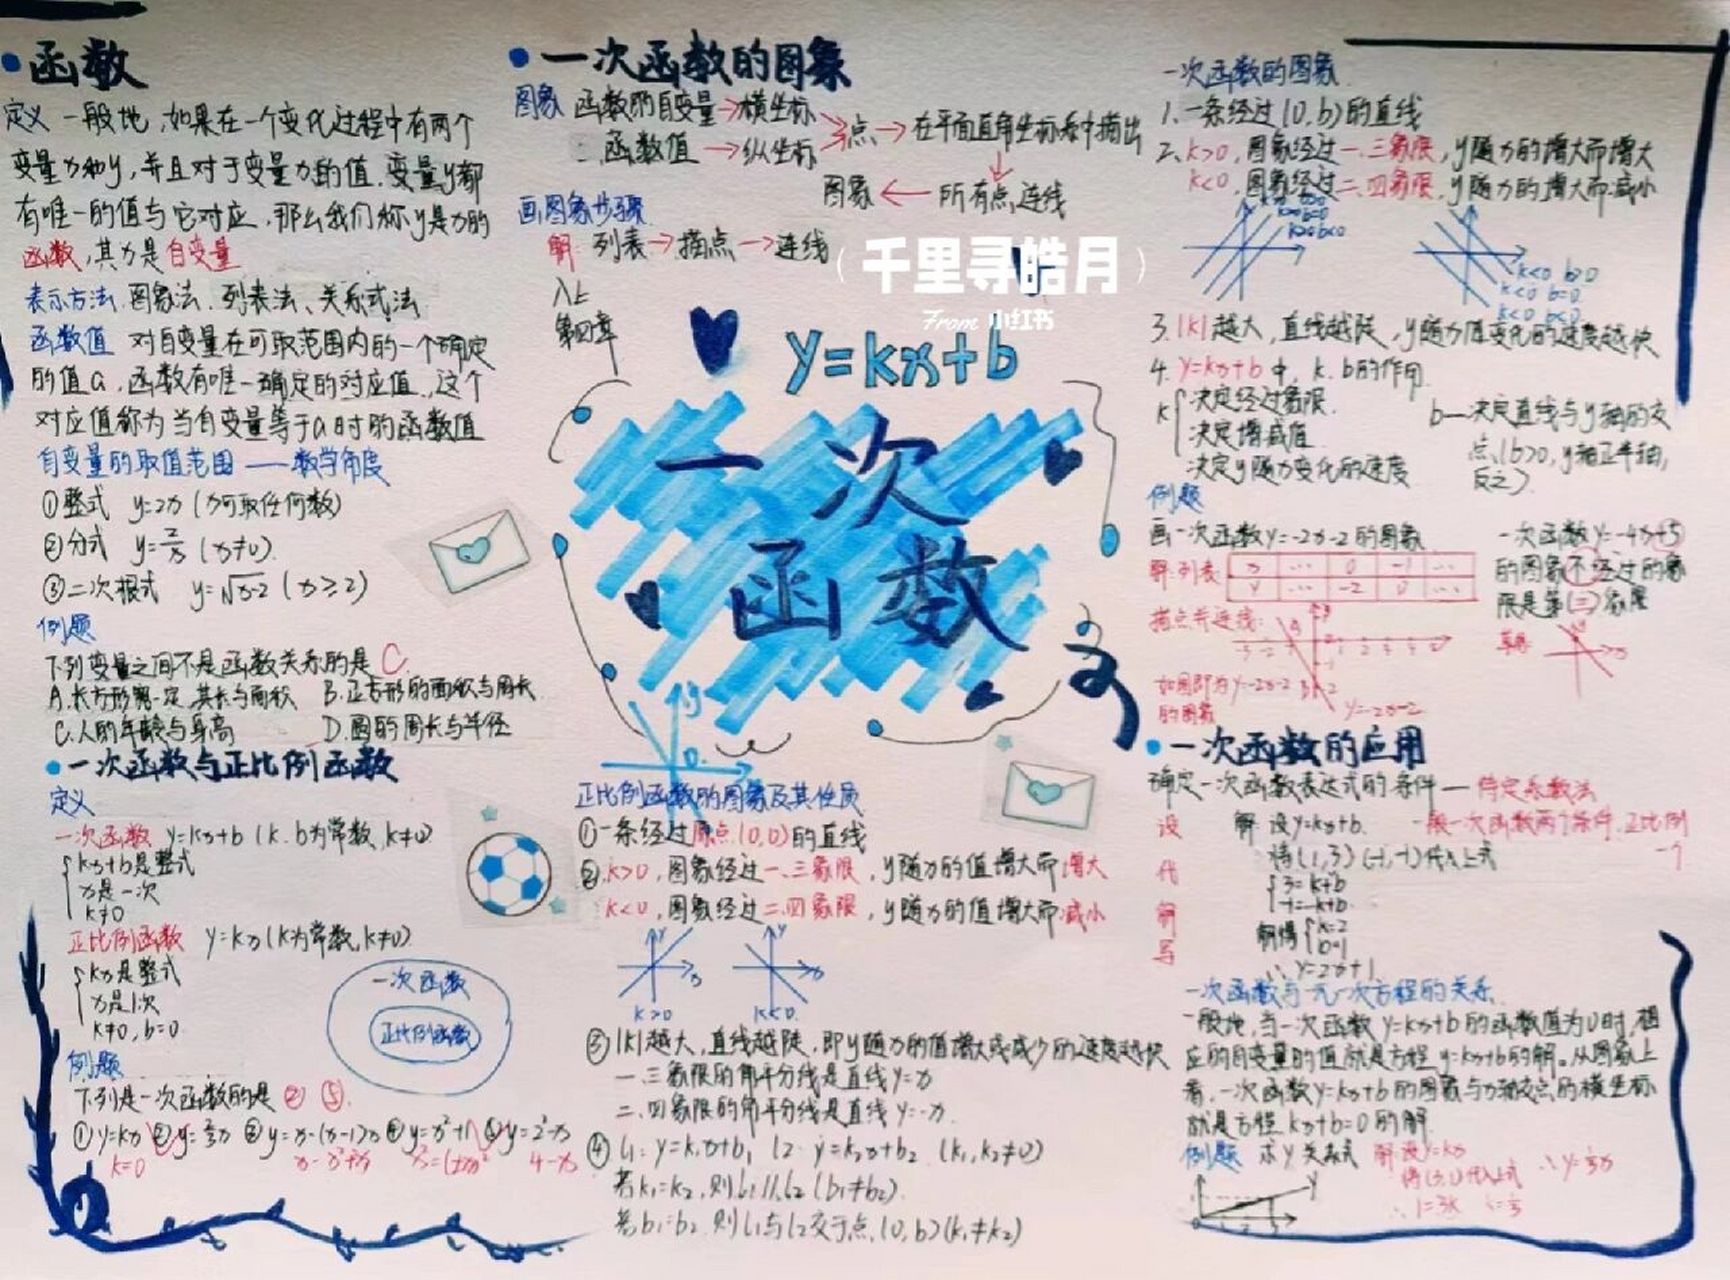 函数
定义 一般地，如果在一个变化过程中有两个
变量x和y，并且对于变量x的值，变量y都
有唯一的值与它对应，那么我们称y是x的
函数，其x是自变量
表示方法 图象法、列表法、关系式法
函数值 对自变量在可取范围内的一个确定
的值a，函数有唯一确定的对应值，这个
对应值称为当自变量等于a时的函数值
自变量的取值范围——数学角度
①整式 y=2x (x可取任何数)
②分式 y=2/x (x≠0)
③二次根式 y=√x-2 (x≥2)
例题
下列变量之间不是函数关系的是 C
A.长方形宽一定，其长与面积 B.正方形的面积与周长
C.人的年龄与身高 D.圆的周长与半径
一次函数与正比例函数
定义
一次函数 y=kx+b (k.b为常数,k≠0)
kx+b是整式
x是一次
k≠0
正比例函数 y=kx(k为常数,k≠0)
kx是整式
x是1次
k≠0,b=0
一次函数
正比例函数
例题
下列是一次函数的是 ② ⑤
①y=kx
k=0
4-x
一次函数的图象
图象 函数的自变量→横坐标
函数值→纵坐标
点→在平面直角坐标系中描出
图象←所有点连线
画图象步骤
解:列表→描点→连线
(千里寻皓月)
From 小红书
八上
第四章
y=kx+b
一次
函数
y
0
正比例函数的图象及其性质
①一条经过原点(0,0)的直线
②k>0,图象经过一、三象限,y随x的值增大而增大
k<0,图象经过二、四象限,y随x的值增大而减小
y x y x
k>0 k<0
③|k|越大,直线越陡,即y随x的值增大或减少的速度越快
一、三象限的角平分线是直线y=x
二、四象限的角平分线是直线y=-x
④l₁:y=k₁x+b₁ l₂:y=k₂x+b₂ (k₁,k₂≠0)
若k₁=k₂,则l₁//l₂(b₁≠b₂)
若b₁=b₂,则l₁与l₂交于点(0,b)(k₁≠k₂)
一次函数的图象
1.一条经过(0,b)的直线
2.k>0,图象经过一、三象限,y随x的增大而增大
k<0,图象经过二、四象限,y随x的增大而减小
k<0 b>0
k<0 b=0
k<0 b<0
3.|k|越大,直线越陡,y随x值变化的速度越快
4.y=kx+b中,k.b的作用
k
决定经过象限
决定增减值
决定y随x变化的速度
b—决定直线与y轴的交
点(b>0,y轴正半轴,
反之)
例题
画一次函数y=-2x-2的图象
解:列表:
x … 0 -1 …
y … -2 0 …
描点并连线:
如图即为y=-2x-2
的图象
y=-2x-2
一次函数y=-4x+5
的图象不经过的象
限是第(三)象限
草稿
一次函数的应用
确定一次函数表达式的条件—待定系数法
设 解 设y=kx+b 一般一次函数两个条件,正比例
一个
代 将(1,3)(-1,-1)代入上式
3=k+b
-1=-k+b
解 解得 k=2
b=1
写 ∴y=2x+1
一次函数与一元一次方程的关系
一般地,当一次函数y=kx+b的函数值为0时,相
应的自变量的值就是方程y=kx+b的解。从图象上
看,一次函数y=kx+b的图象与x轴交点的横坐标
就是方程kx+b=0的解
例题 求y关系式 解 设y=kx
将(3,1)代入上式
∴1=3k